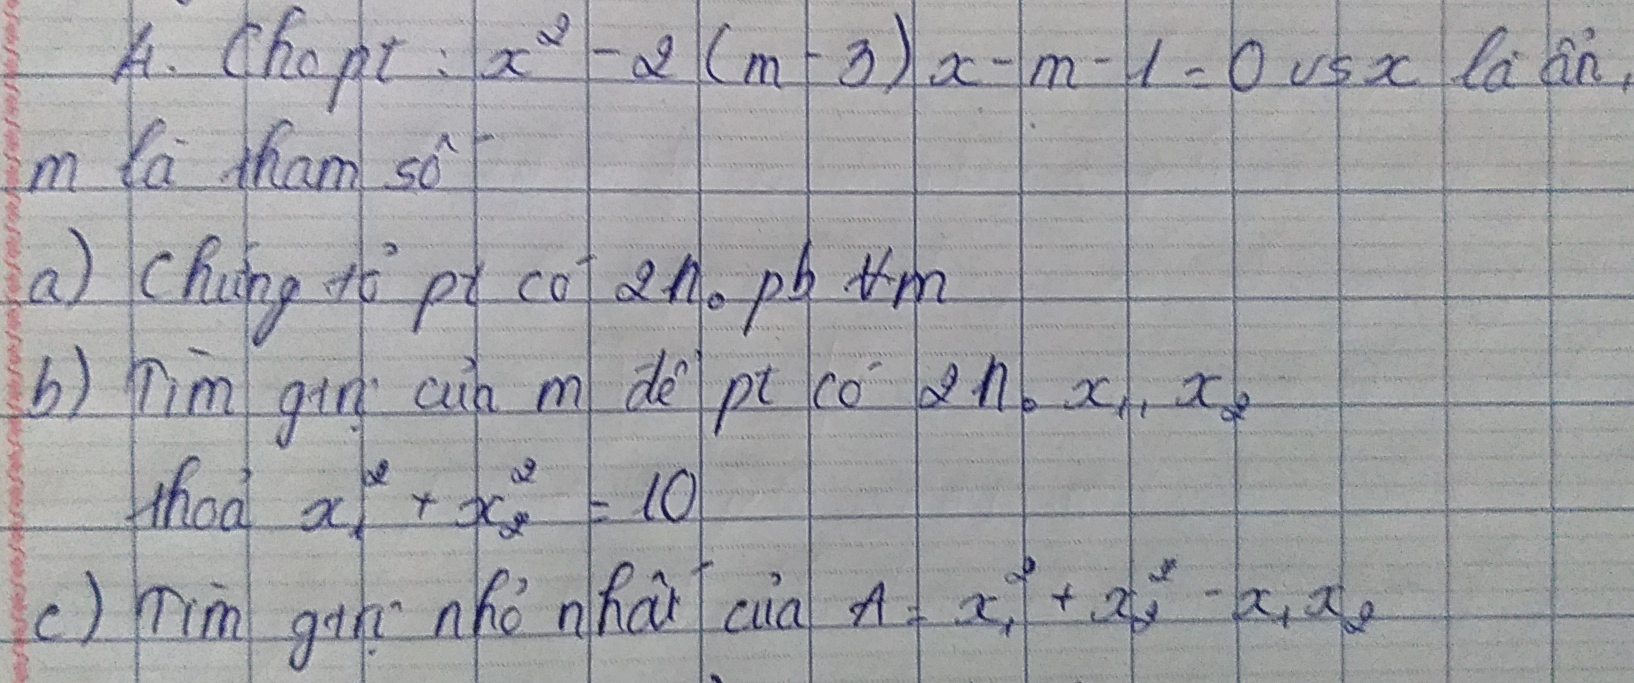 4. Cho pt : x² - 2(m - 3)x - m - 1 = 0 vs x là ẩn,
m là tham số
a) Chứng tỏ pt có 2n₀ pb ∀m
b) Tìm gtrị của m để pt có 2n₀ x₁, x₂
thoả x₁² + x₂² = 10
c) Tìm gtrị nhỏ nhất của A = x₁² + x₂² - x₁x₂